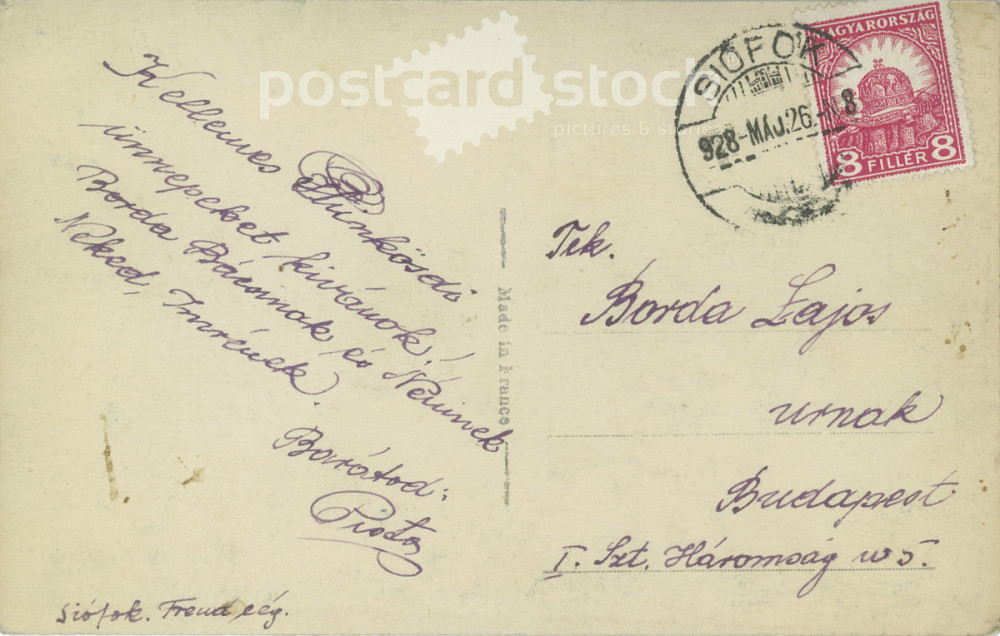 postcardstock
pictures & stories
MAGYARORSZÁG
8 FILLÉR 8
SIÓFOK
928-MÁJ.26.-N8
Kellemes Pünkösdi
ünnepeket kivánok!
Borda Bácsinak és Néninek
Neked, Imrének.
Barátod:
Siófok.
Made in France
Tek.
Borda Lajos
urnak
Budapest
I. Szt. Háromság u 5.